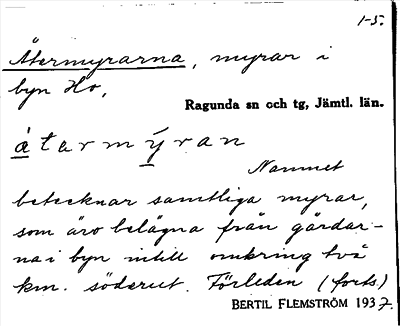 1-5.
Återmyrarna, myrar i
byn Ho,
Ragunda sn och tg, Jämtl. län.
åtarmýran
Namnet
betecknar samtliga myrar,
som äro belägna från gårdar-
na i byn intill omkring två
km. söderut. Förleden (forts.)
BERTIL FLEMSTRÖM 1937.